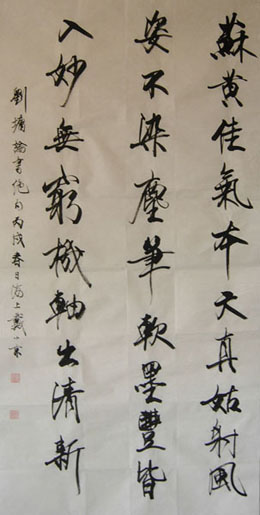 蘇黄佳氣本天真姑射風
姿不染塵筆軟墨豐皆
入妙無窮機軸出清新
劉墉論書絶句丙戌春日海上戴小京